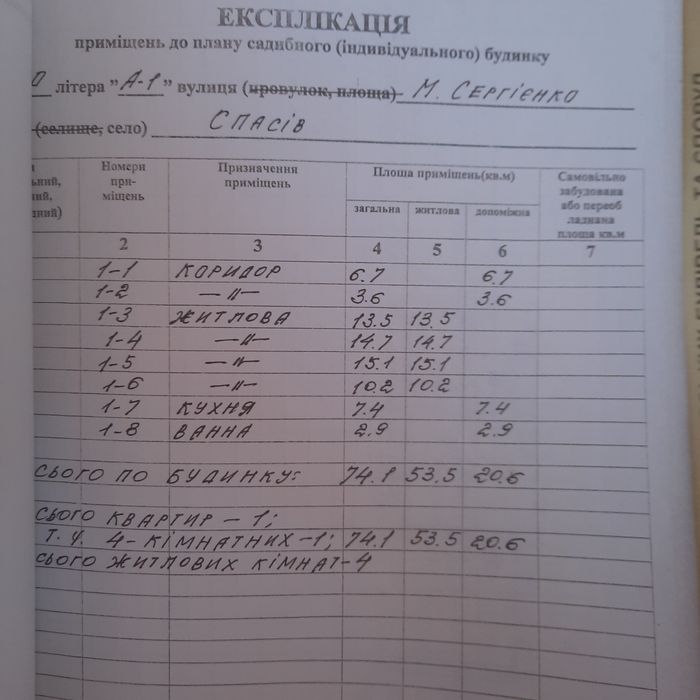 ЕКСПЛІКАЦІЯ
приміщень до плану садибного (індивідуального) будинку
літера "А-1" вулиця (провулок, площа) М. СЕРГІЄНКО
(селище, село) СПАСІВ
Номери приміщень Призначення приміщень Площа приміщень(кв.м) Самовільно забудована або переобладнана площа кв.м
загальна житлова допоміжна
2 3 4 5 6 7
1-1 КОРИДОР 6.7 6.7
1-2 —〃— 3.6 3.6
1-3 ЖИТЛОВА 13.5 13.5
1-4 —〃— 14.7 14.7
1-5 —〃— 15.1 15.1
1-6 —〃— 10.2 10.2
1-7 КУХНЯ 7.4 7.4
1-8 ВАННА 2.9 2.9
СЬОГО ПО БУДИНКУ: 74.1 53.5 20.6
СЬОГО КВАРТИР – 1;
Т. Ч. 4-КІМНАТНИХ-1; 74.1 53.5 20.6
СЬОГО ЖИТЛОВИХ КІМНАТ-4